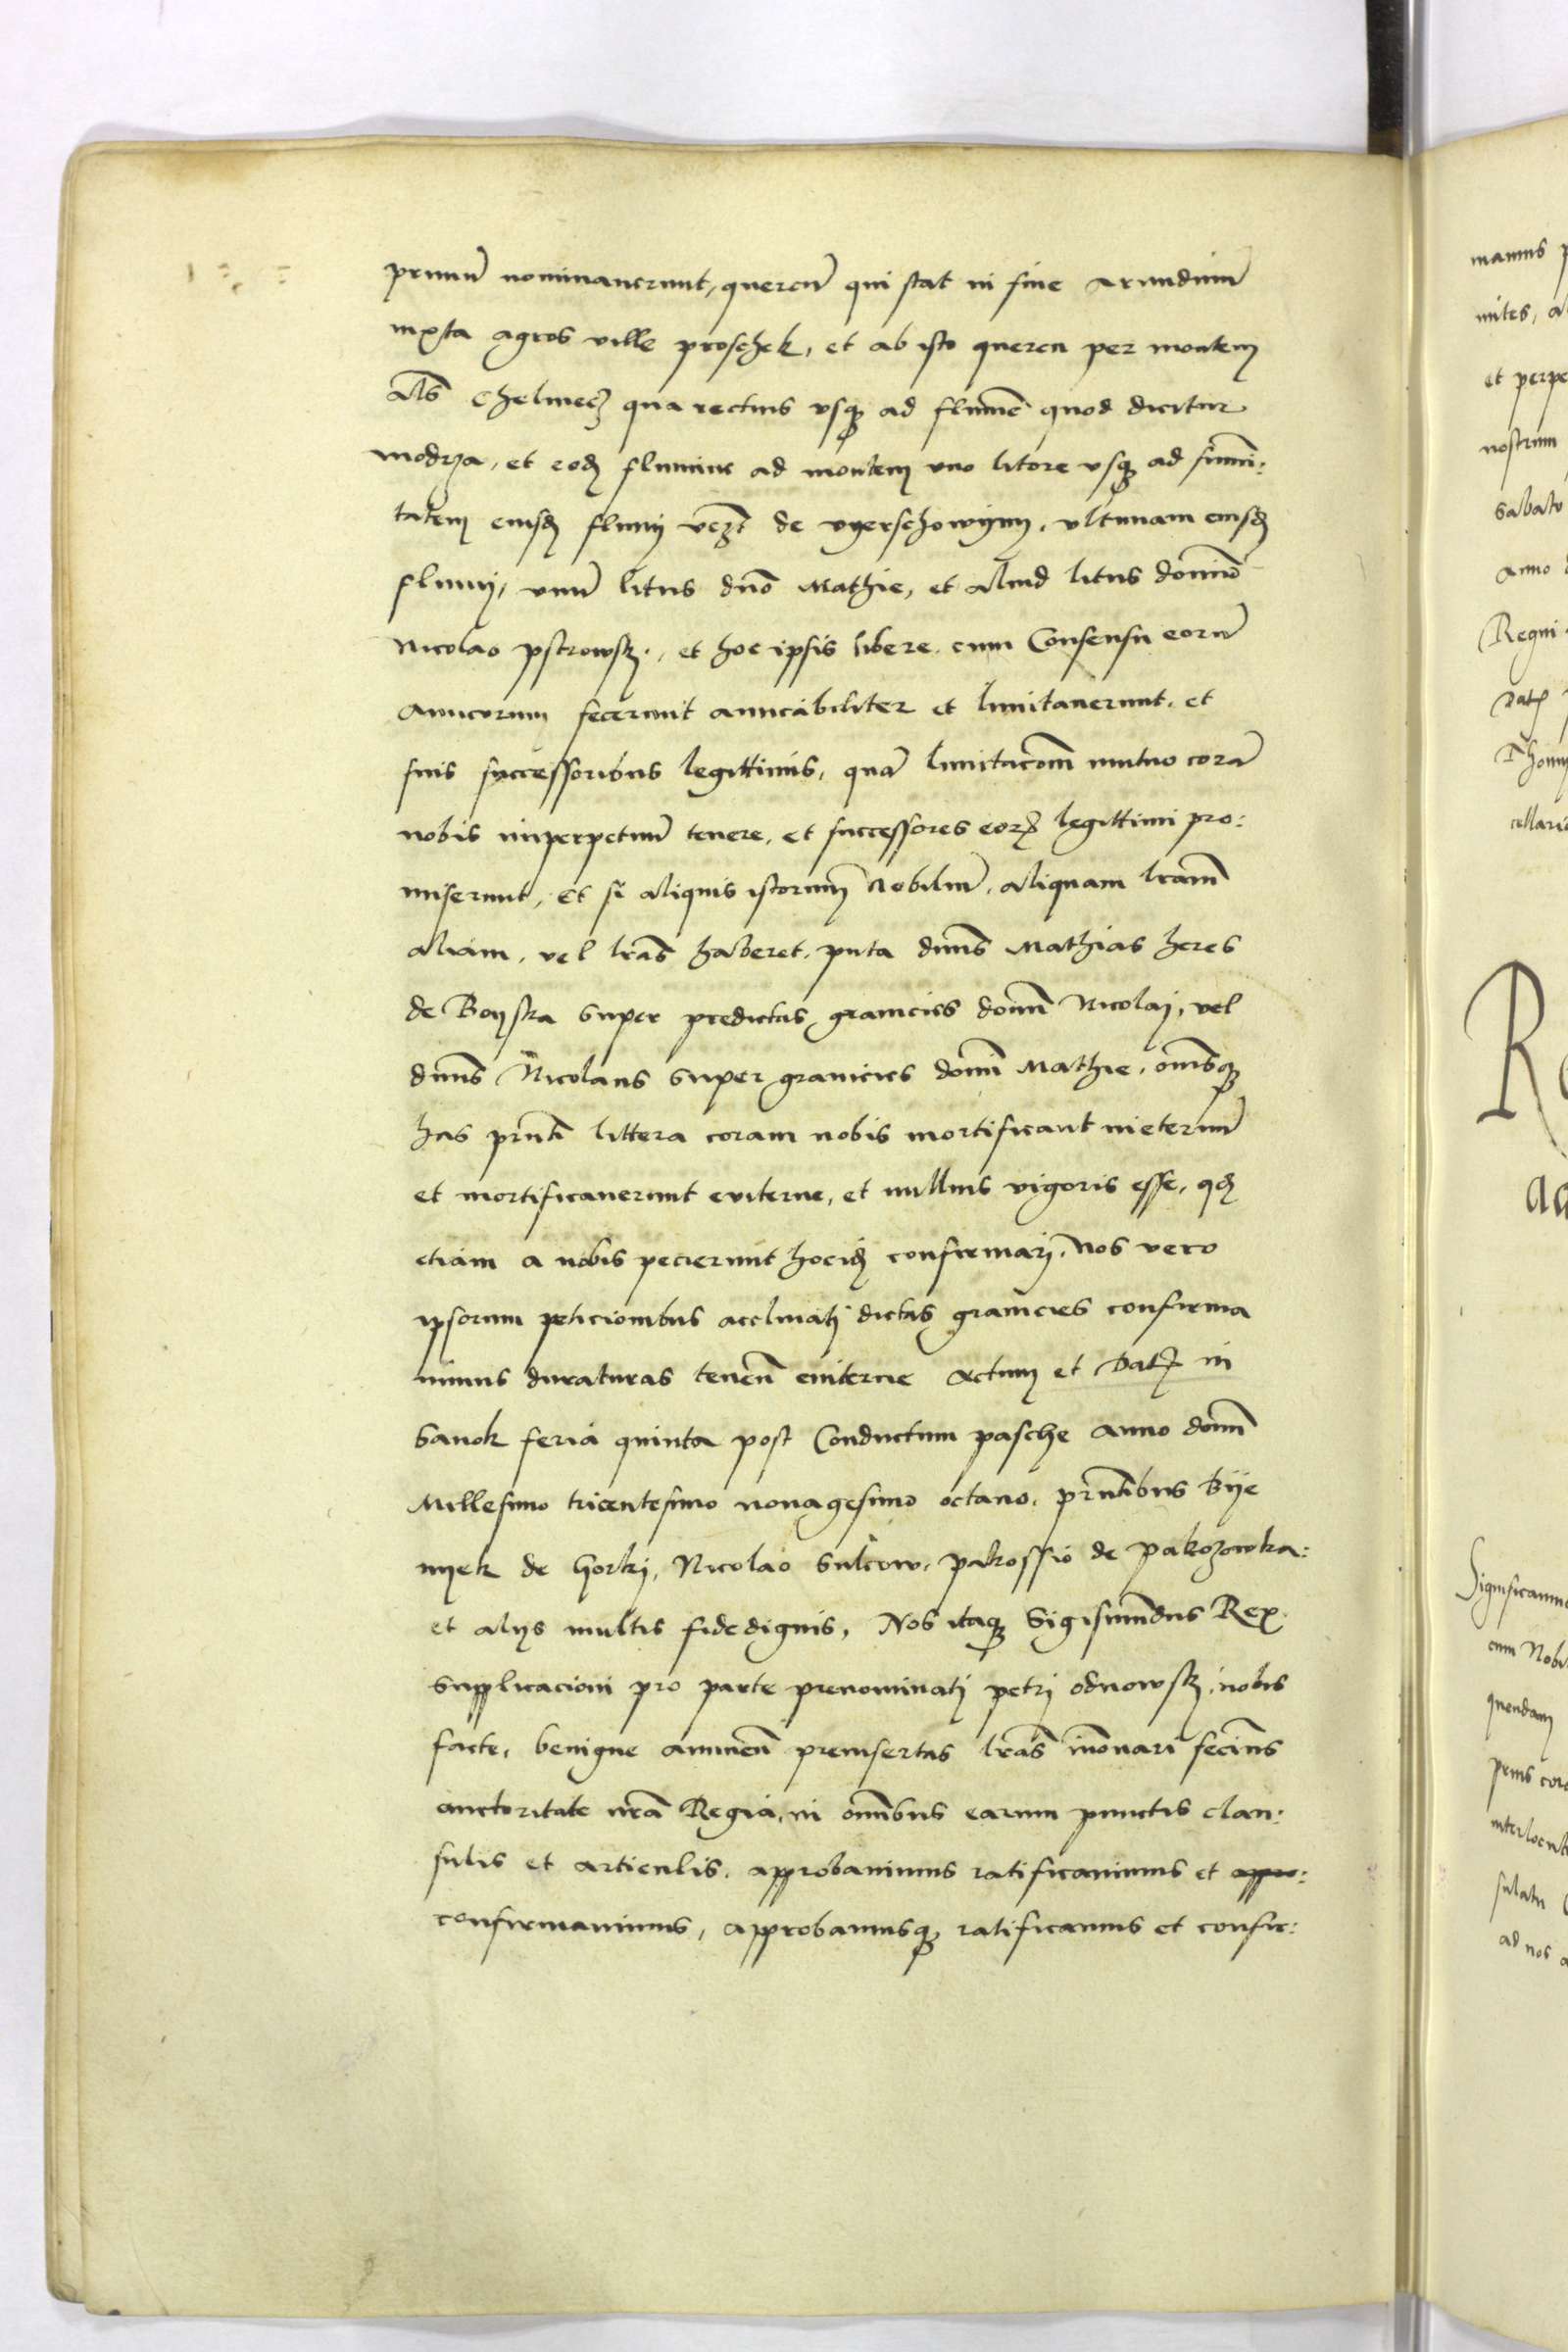 primu̅ nominauerunt, quercu̅ qui stat in fine arundinu̅
iuxta agros ville proschek, et ab isto quercu per montem
al̅s Chelmecz qua rectius vsq̨ ad flume̅ quod dicitur
modrza, et eod̨ flumine ad montem vno litore vsq̨ ad su̅mi:
tatem eiusd̨ fluuij de vyerschowynij, vltimam eiusd̨
fluuij, vnu̅ litus dn̅o Mathie, et aliud litus domino̅
Nicolao pstrowsk., et hoc ipsis libere cum Consensu eoru̅
Amicorum fecerunt amicabiliter et limitauerunt, et
suis successoribus legittimis, qua̅ limitac̅om̅ mutuo cora̅
nobis inperpetuu̅ tenere, et successores eorꝝ legittimi pro:
miserunt, Et si aliquis istorum Nobiliu̅, aliquam lr̅am̅
aliam, vel lr̅as haberet, puta dn̅us Mathias heres
de Boyska super predictas granicies domi̅ Nicolaj, vel
dn̅us Nicolaus super granicies domi̅ Mathie, om̅sq̨
has pn̅ti littera coram nobis mortificant in eternu̅
et mortificauerunt euiterne, et nullius vigoris esse, qd̨
etiam a nobis pecierunt hocid̨ confirmarj, Nos vero
ipsorum peticionibus acclinatj dictas granicies confirma
uimus duraturas tenen̅ euiterne Actum et Datꝫ in
Sanok feria quinta post Conductum pasche Anno domi̅
Millesimo tricentesimo nonagesimo octauo, pn̅tibus Bije
nijek de Gorkj, Nicolao Sulcow, pakossio de pakozowka:
et alijs multis fidedignis, Nos itaq̨ Sigismu̅dus Rex
Supplicacioni pro parte prenominatj petrj odnowsk, nobis
facte, benigne annuen̅ preinsertas lr̅as in̅ouari fecim̅s
auctoritate nr̅a Regia, in om̅ibus earum punctis clau:
sulis et articulis, approbauimus ratificauimus et appro:
confirmauimus, Approbamusq̨ ratificamus et confir:
manus
mites,
et perpe
nostrum
Sabato
Anno
Regni
Datꝫ
cellari
R
Significamus
cum Nobi
quendam
interlocut
ad nos